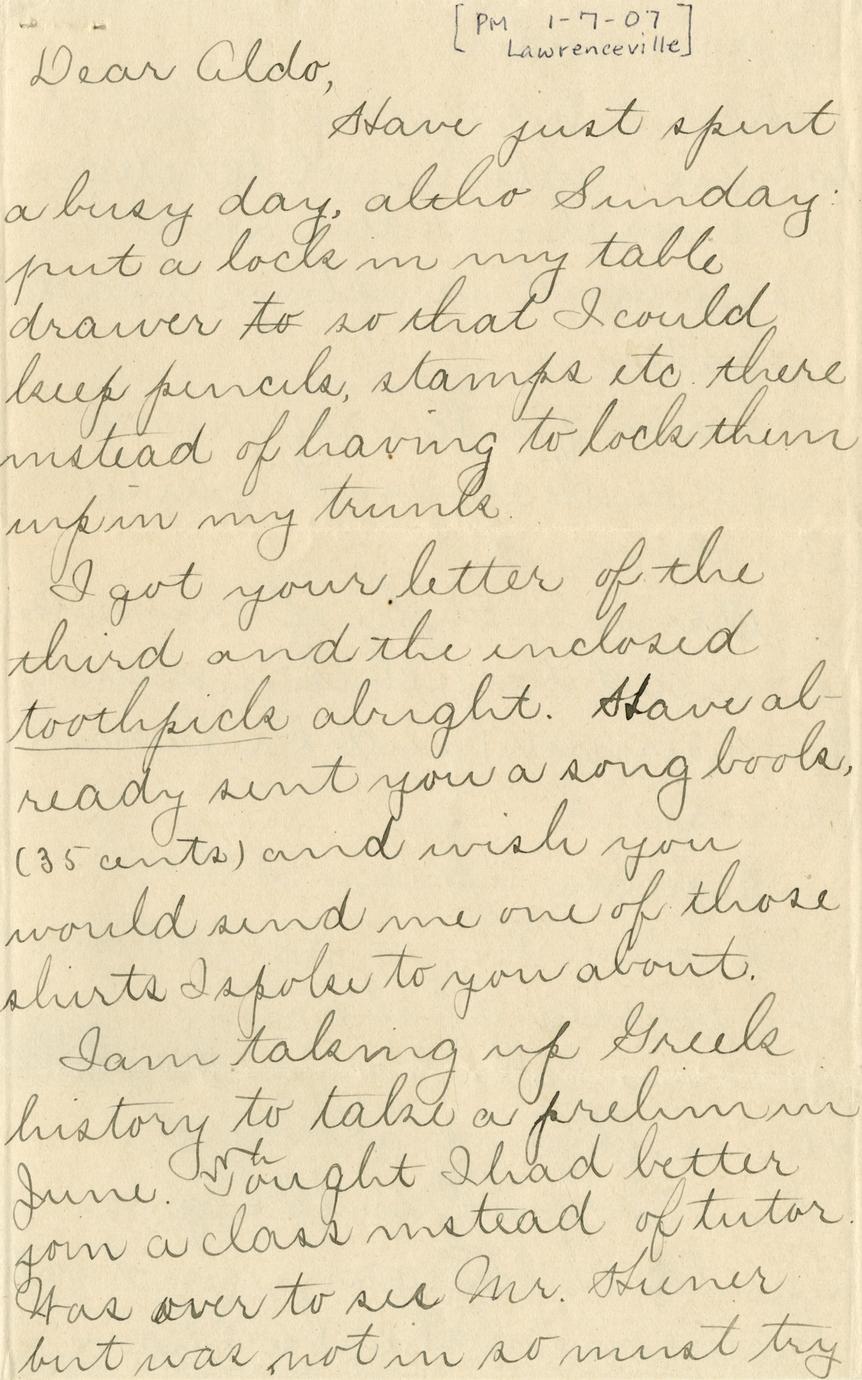 [PM 1-7-07
Lawrenceville]
Dear Aldo,
Have just spent
a busy day, altho Sunday:
put a lock in my table
drawer to so that I could
keep pencils, stamps etc. there
instead of having to lock them
up in my trunk.
I got your letter of the
third and the enclosed
toothpick alright. Have al-
ready sent you a song book,
(35 cents) and wish you
would send me one of those
shirts I spoke to you about.
I am taking up Greek
history to take a prelim in
June. Thought I had better
join a class instead of tutor.
Was over to see Mr.
but was not in so must try